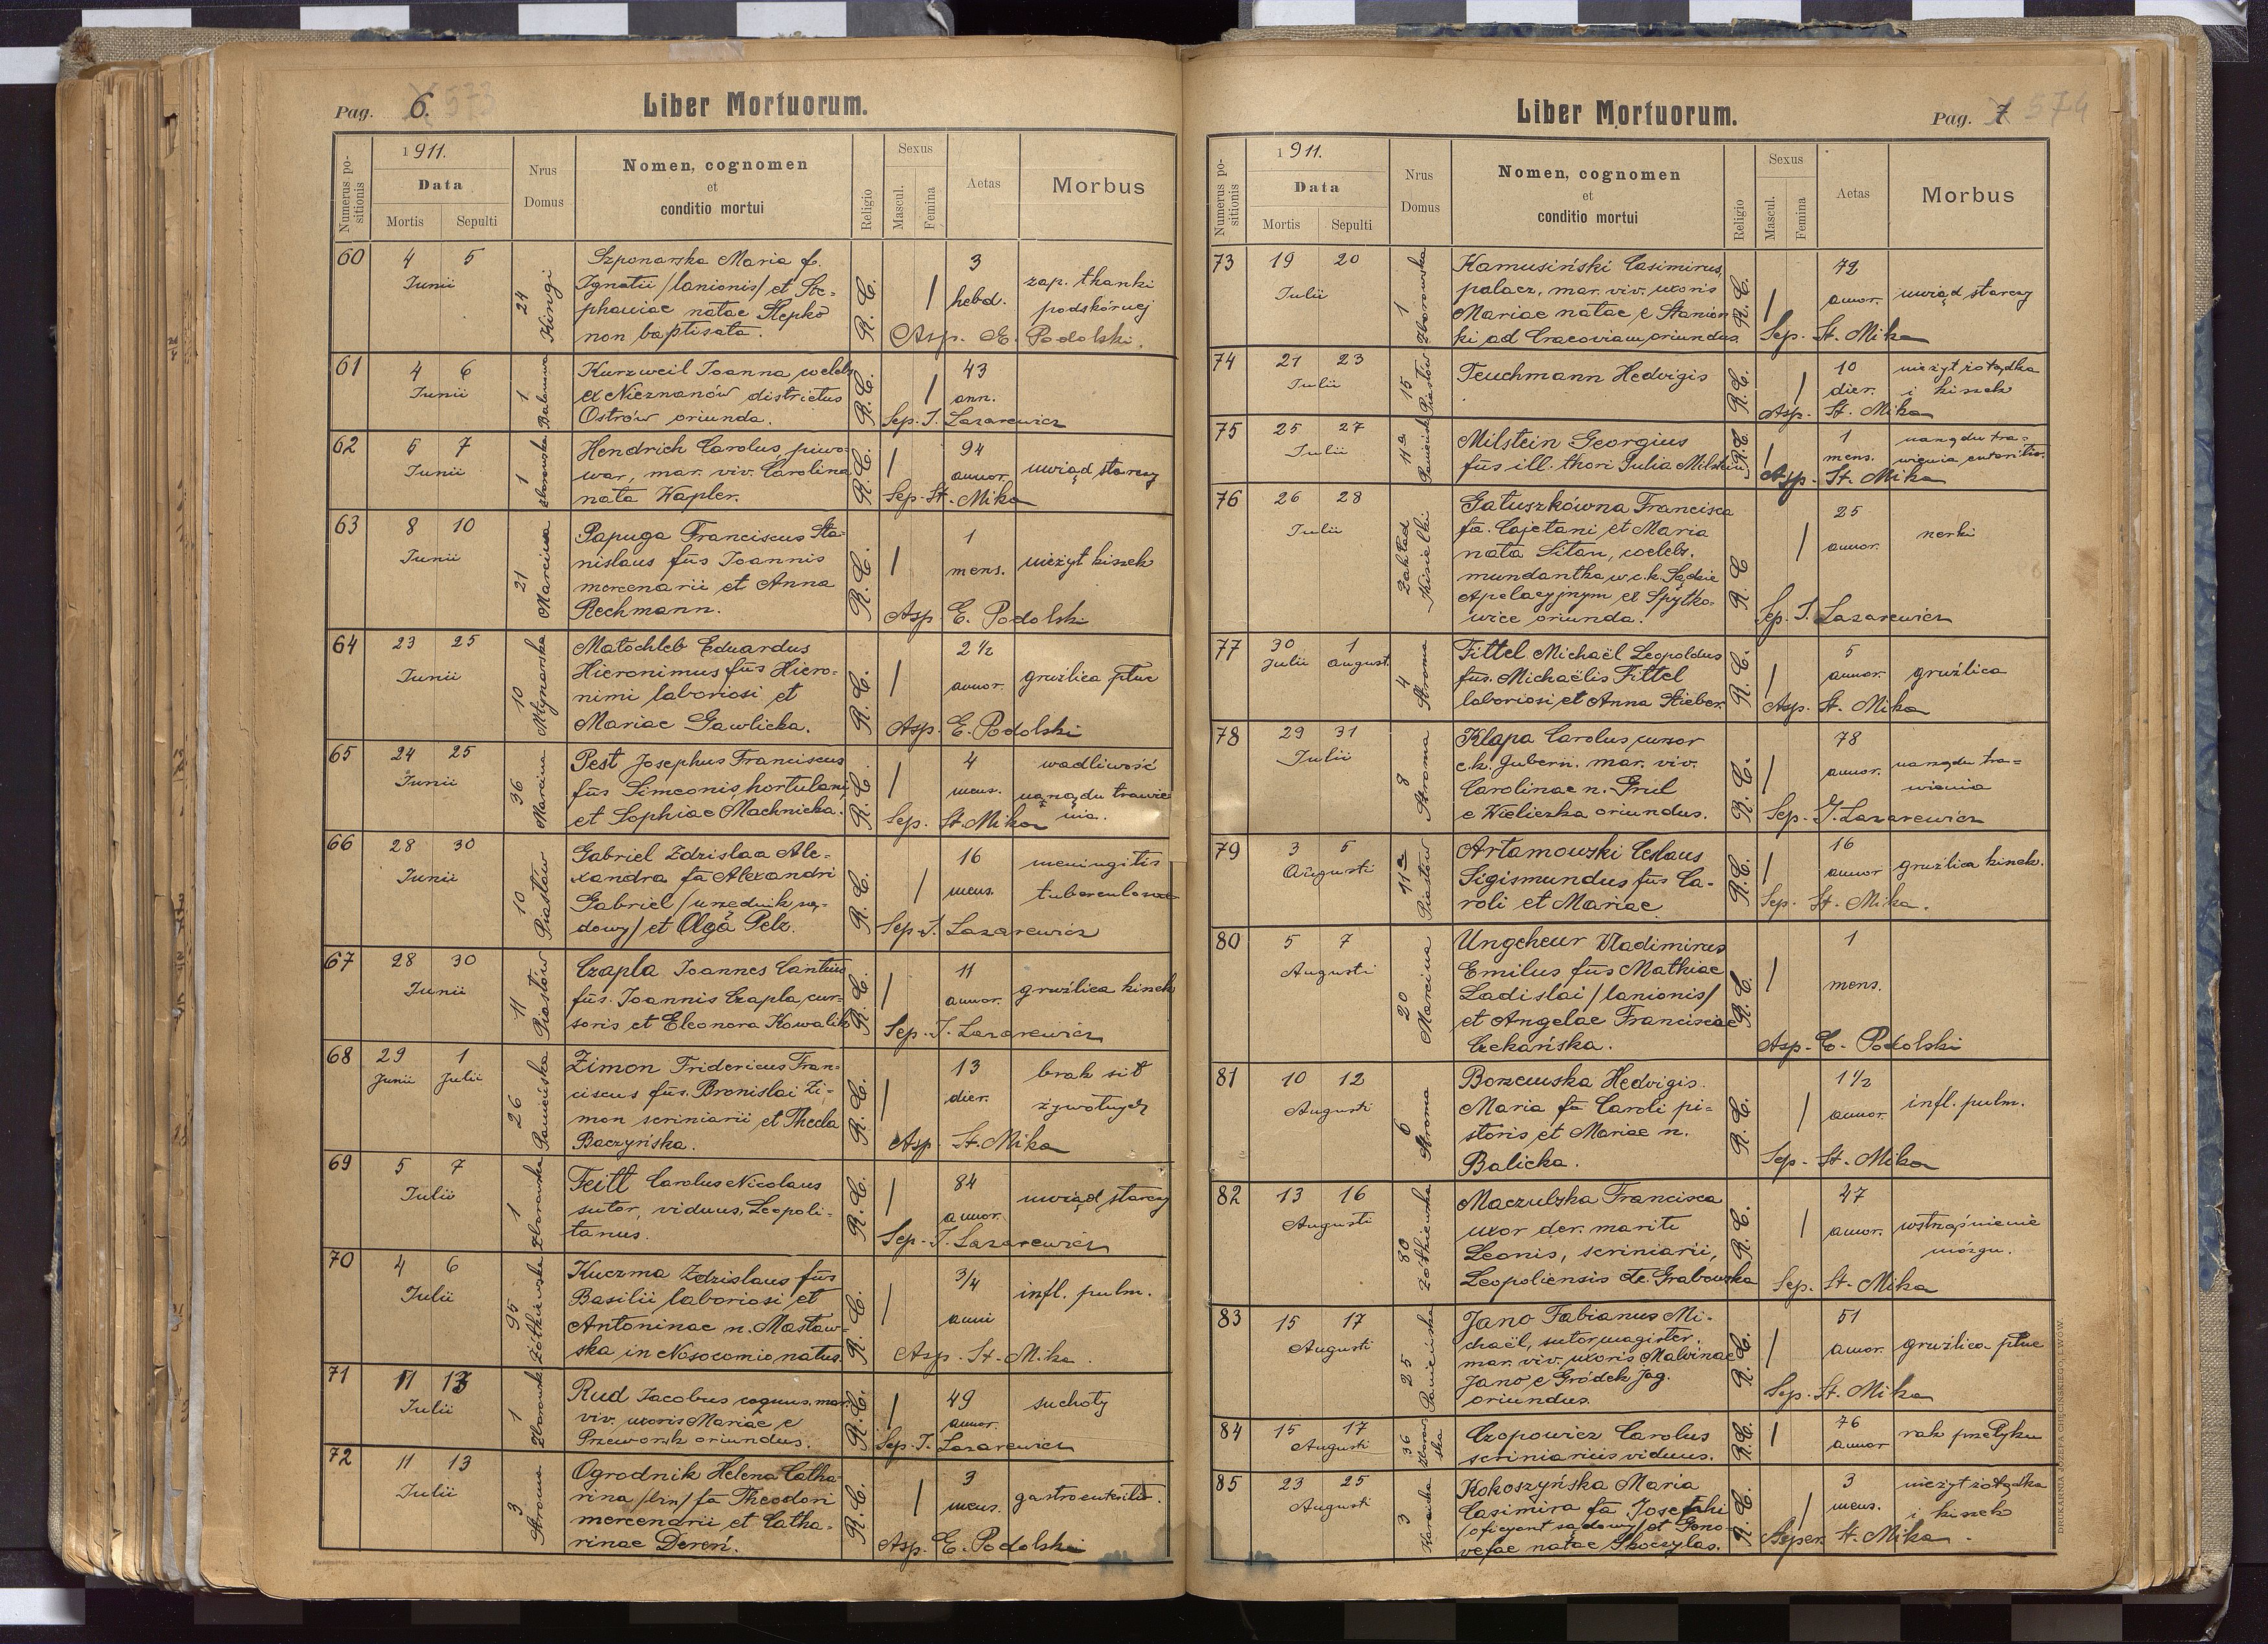 Pag. 6. 573
Liber Mortuorum.
Numerus positionis
1911.
Data
Mortis Sepulti
Nrus Domus
Nomen, cognomen
et
conditio mortui
Religio
Sexus
Mascul. Femina
Aetas
Morbus
60 4 5 Junii 24 Kingi
Szponarska Maria f.
Ignatii /lanionis/ et Ste-
phaniae natae Słepko
non baptisata.
R. C. | 3 hebd. zap. tkanki podskórnej
Asp. E. Podolski.
61 4 6 Junii 1
Kurzweil Joanna coelebs
ex Nieznanów districtus
Ostrów oriunda.
R. C. | 43 ann.
Sep. J. Lazarewicz
62 5 7 Junii 1 Zborowska
Hendrich Carolus, piwo-
war, mar. viv. Carolina
nata Wapler.
R. C. | 94 annor. uwiąd starczy
Sep. St. Mika
63 8 10 Junii 21 Marcina
Papuga Franciscus Sta-
nislaus fus Joannis
mercenarii et Anna
Rechmann.
R. C. | 1 mens. nieżyt kiszek
Asp E. Podolski
64 23 25 Junii 10 Młynarska
Małochleb Eduardus
Hieronimus fus Hiero-
nimi laboriosi et
Mariae Gawlicka.
R. C. | 2 1/2 annor. gruźlica płuc
Asp. E. Podolski
65 24 25 Junii 36 Marcina
Pest Josephus Franciscus
fus Simeonis, hortulani,
et Sophiae Machnicka.
R. C. | 4 mens. wadliwość narządu trawienia.
Sep. St. Mika
66 28 30 Junii 10 Piastów
Gabriel Zdzislaa Ale-
xandra fa Alexandri
Gabriel /urzędnik są-
dowy/ et Olga Pelz.
R. C. | 16 mens. meningitis tuberculosa
Sep. J. Lazarewicz
67 28 30 Junii 11 Piastów
Czapla Joannes Cantius
fus. Joannis Czapla cur-
soris et Eleonora Kowalik
R. C. | 11 annor. gruźlica kiszek
Sep. J. Lazarewicz
68 29 Junii 1 Julii 26 Panieńska
Zimon Fridericus Fran-
ciscus fus. Bronislai Zi-
mon scriniarii et Thecla
Baczyńska.
R. C. | 13 dier. brak sił żywotnych
Asp St. Mika
69 5 7 Julii 1 Zborowska
Feitl Carolus Nicolaus
sutor, viduus, Leopoli-
tanus.
R. C. | 84 annor. uwiąd starczy
Sep. J. Lazarewicz
70 4 6 Julii 95 Żółkiewska
Kuczma Zdzislaus fus
Basilii laboriosi et
Antoninae n. Masław-
ska in Nosocomio natus.
R. C. | 3/4 anni infl. pulm.
Asp. St. Mika.
71 11 13 Julii 1 Zborowska
Rud Jacobus mar.
viv. uxoris Mariae e
Przeworsk oriundus.
R. C. | 49 annor. suchoty
Sep. J. Lazarewicz
72 11 13 Julii 3 Stroma
Ogrodnik Helena Catha-
rina /bin/ fa Theodori
mercenarii et Catha-
rinae Dereń.
R. C. | 3 mens. gastroenteritis.
Asp. E. Podolski
Liber Mortuorum.
Pag. 7 574
Numerus positionis
1911.
Data
Mortis Sepulti
Nrus Domus
Nomen, cognomen
et
conditio mortui
Religio
Sexus
Mascul. Femina
Aetas
Morbus
73 19 20 Julii 1 Zborowska
Kamusiński Casimirus,
palacz, mar. viv. uxoris
Mariae natae e Stanion-
ki ad Cracoviam oriundus
R. C. | 72 annor. uwiąd starczy
Sep. St. Mika
74 21 23 Julii 15 Piastów
Teuchmann Hedvigis
R. C. | 10 dier. nieżyt żołądka i kiszek
Asp. St. Mika
75 25 27 Julii 11a Panieńska
Milstein Georgius
fus ill. thori Julia Milstein
R. C. | 1 mens. narządu tra-
wienia
Asp. St. Mika
76 26 28 Julii Zakład Kisielki
Gałuszkówna Francisca
fa. Cajetani et Maria
nata Sitan, coelebs.
mundantka w c.k. Sądzie
Apelacyjnym ex Spytko-
wice oriunda.
R. C | 25 annor. nerki
Sep. J. Lazarewicz
77 30 Julii 1 August. 4 Stroma
Fittel Michaël Leopoldus
fus. Michaëlis Fittel
laboriosi et Anna Stieber.
R. C. | 5 annor. gruźlica
Asp. St. Mika
78 29 31 Julii 8 Stroma
Klapa Carolus, cursor
c.k. Gubern. mar. viv.
Carolinae n. Grul
e Wieliczka oriundus.
R. C. | 78 annor. narządu tra-
wienia
Sep. J. Lazarewicz
79 3 5 Augusti 11a Piastów
Artamowski Ceslaus
Sigismundus fus Ca-
roli et Mariae
R. C. | 16 annor gruźlica kiszek.
Sep. St. Mika.
80 5 7 Augusti 20 Marcina
Ungeheur Vladimirus
Emilus fus Mathiae
Ladislai /lanionis/
et Angelae Franciscae
Czekańska.
R. C. | 1 mens.
Asp. E. Podolski
81 10 12 Augusti 6 Stroma
Borzewska Hedvigis
Maria fa Caroli pi-
storis et Mariae n.
Balicka.
R. C. | 1 1/2 annor. infl. pulm.
Sep. St. Mika
82 13 16 Augusti 80 Żółkiewska
Maczulska Francisca
uxor der. mariti
Leonis, scriniarii,
Leopoliensis de Grabowska
R. C. | 47 annor. wstrząśnienie mózgu.
Sep. St. Mika
83 15 17 Augusti 25 Panieńska
Jano Fabianus Mi-
chaël, sutor magister.
mar. viv. uxoris Malvinae
Jano e Gródek Jag.
oriundus.
R. C. | 51 annor. gruźlica płuc
Sep. St. Mika
84 15 17 Augusti 36 Zborowska
Czopowicz Carolus
scriniarius viduus.
R. C. | 76 annor rak przełyku
85 23 25 Augusti 3
Kokoszyńska Maria
Casimira fa Josephi
/oficyant sądowy/ et Geno-
vefae natae Skoczylas.
R. C. | 3 mens. nieżyt żołądka i kiszek
Asper. St. Mika.
DRUKARNIA JÓZEFA CHĘCIŃSKIEGO, LWÓW.